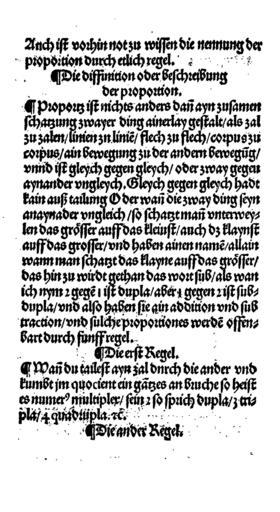 Auch ist vorhin not zu wissen die nennung der
proportion durch etlich regel.
¶Die diffinition oder beschreibung
der proportion.
¶ Proportz ist nichts anders dan̄ ayn zusamen
schatzung zwayer ding ainerlay gestalt/als zal
zu zalen/linien zn linie͂/flech zu flech/corpus zu
corpus/ain bewegung zu der andern bewegūg/
vnnd ist gleych gegen gleych/oder zway gegen
aynander vngleych. Gleych gegen gleych hadt
kain auß tailung Oder wan̄ die zway ding seyn
anaynader vngleich/so schatzet man̄ vnterwey-
len das grösser auff das kleinst/auch dz klaynst
auff das grosser/vnd haben ainen namē/allain
wann man schatzt das klayne auff das grösser/
das hin zu wirdt gethan das wort sub/als wan
ich nym 2 gegē 1 ist dupla/aber 1 gegen 2 ist sub-
dupla/vnd also haben sie ain addition vnd sub
traction/vnd sulche proportiones werdē offen-
bart durch fünff regel.
¶Die erst Regel.
¶ Wan̄ du tailest ayn zal durch die ander vnd
kumbt jm quocient ein gātzes an bruche so heist
es numerꝰ multiplex/sein 2 so sprich dupla/3 tri-
pla/4 quadrupla. ꝛc.
¶Die ander Regel.